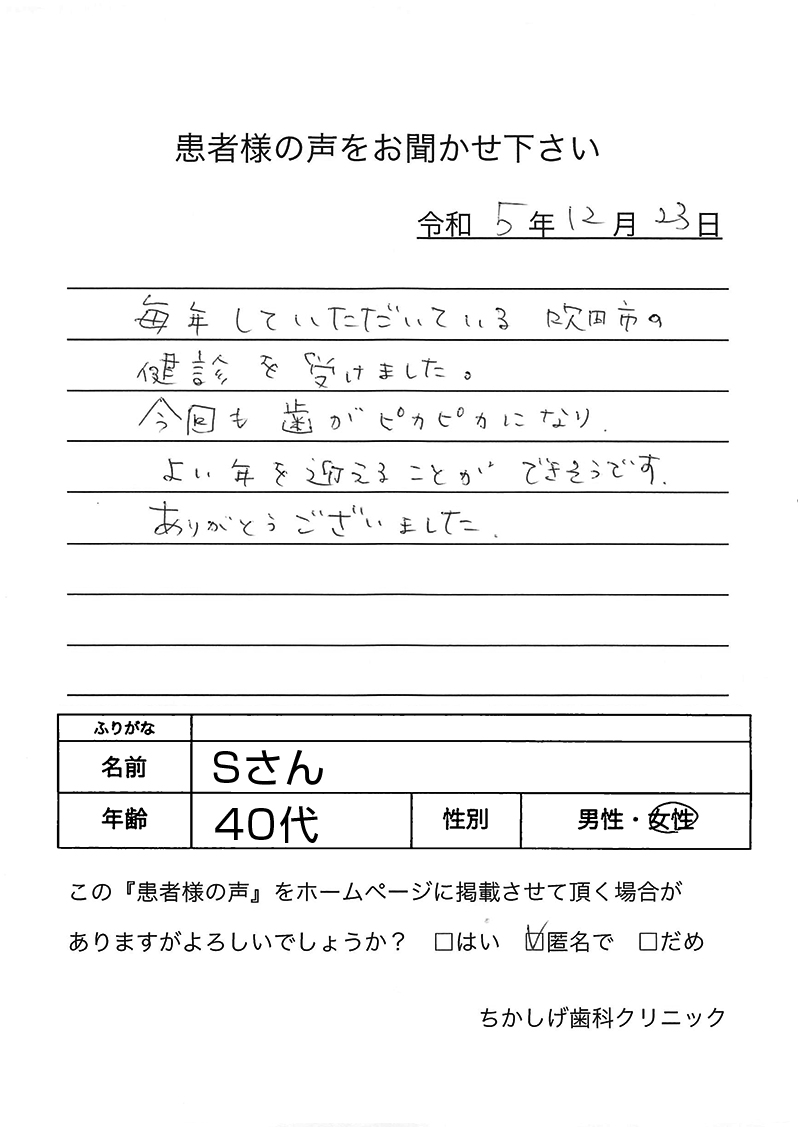 患者様の声をお聞かせ下さい
令和 5年12月23日
毎年していただいている 吹田市の
健診を受けました。
今回も歯がピカピカになり.
よい年を迎えることができそうです.
ありがとうございました.
ふりがな
名前 Sさん
年齢 40代 性別 男性・女性
この『患者様の声』をホームページに掲載させて頂く場合が
ありますがよろしいでしょうか？ □はい ☑匿名で □だめ
ちかしげ歯科クリニック